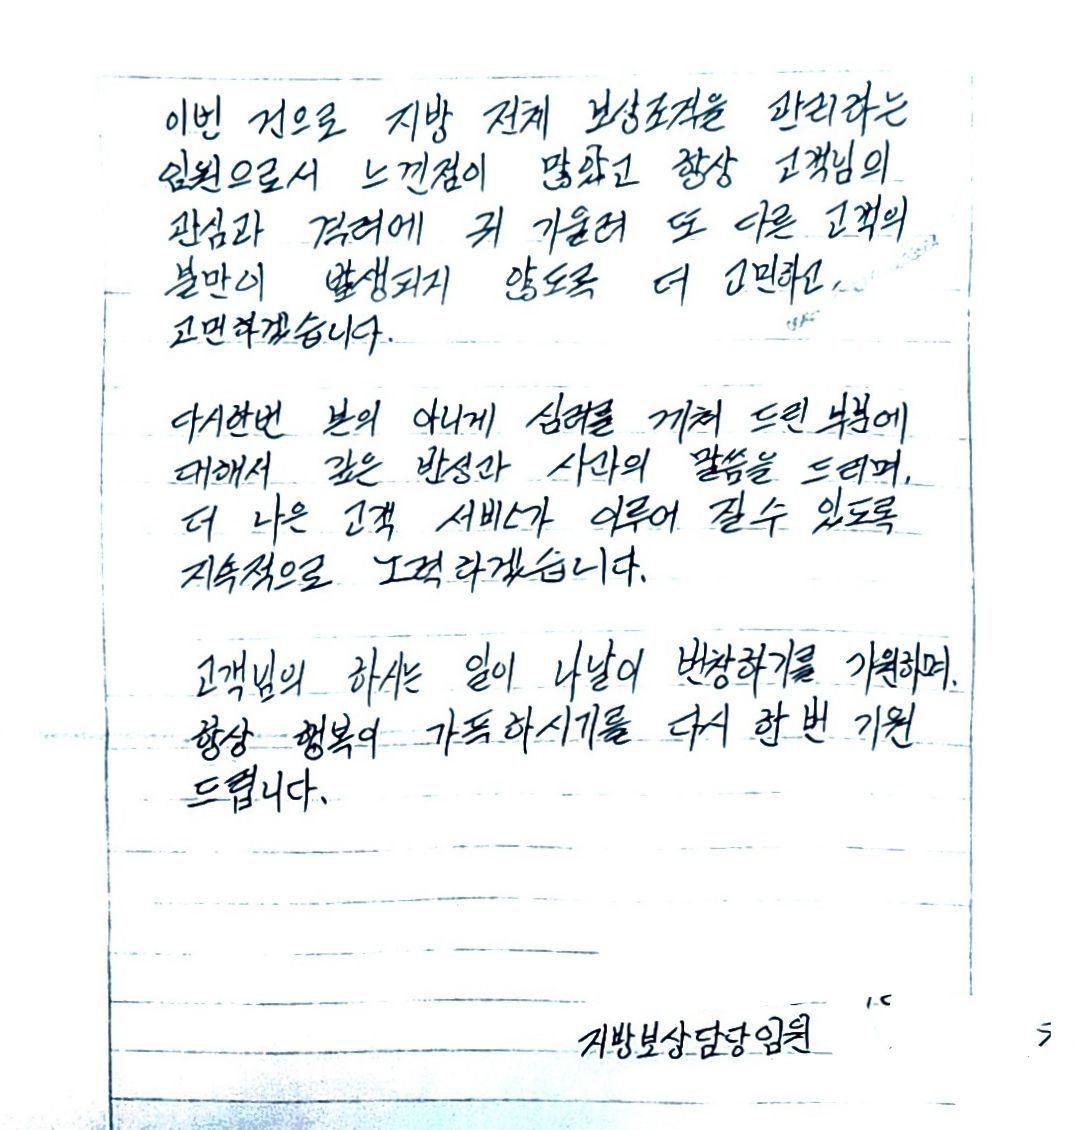 이번 건으로 지방 전체 보상조직을 관리하는
임원으로서 느낀점이 많았고 항상 고객님의
관심과 격려에 귀 기울려 또 다른 고객의
불만이 발생되지 않도록 더 고민하고,
고민하겠습니다.
다시한번 본의 아니게 심려를 끼쳐 드린 부분에
대해서 깊은 반성과 사과의 말씀을 드리며,
더 나은 고객 서비스가 이루어 질수 있도록
지속적으로 노력하겠습니다.
고객님의 하시는 일이 나날이 번창하기를 기원하며,
항상 행복이 가득하시기를 다시 한번 기원
드립니다.
지방보상담당임원